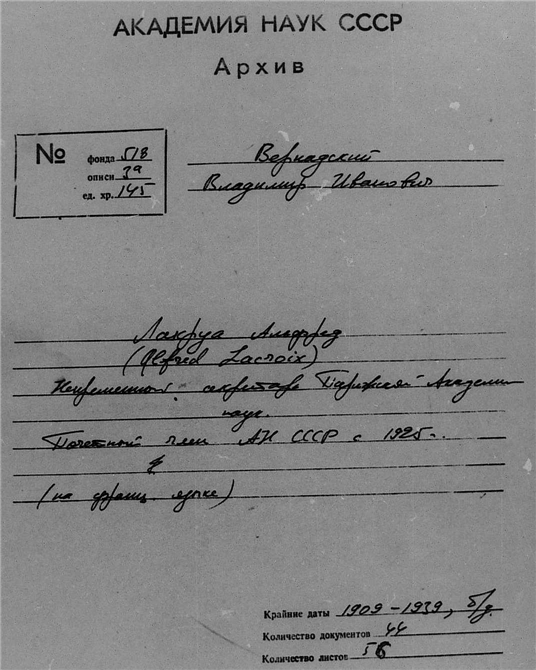 АКАДЕМИЯ НАУК СССР
Архив
№ фонда 518
описи 3а
ед. хр. 145
Вернадский
Владимир Иванович
Лакруа Альфред
(Alfred Lacroix)
Непременный секретарь Парижской Академии
наук.
Почетный член АН СССР с 1925 г.
(на франц. языке)
Крайние даты 1909-1939, б/д.
Количество документов 44
Количество листов 56